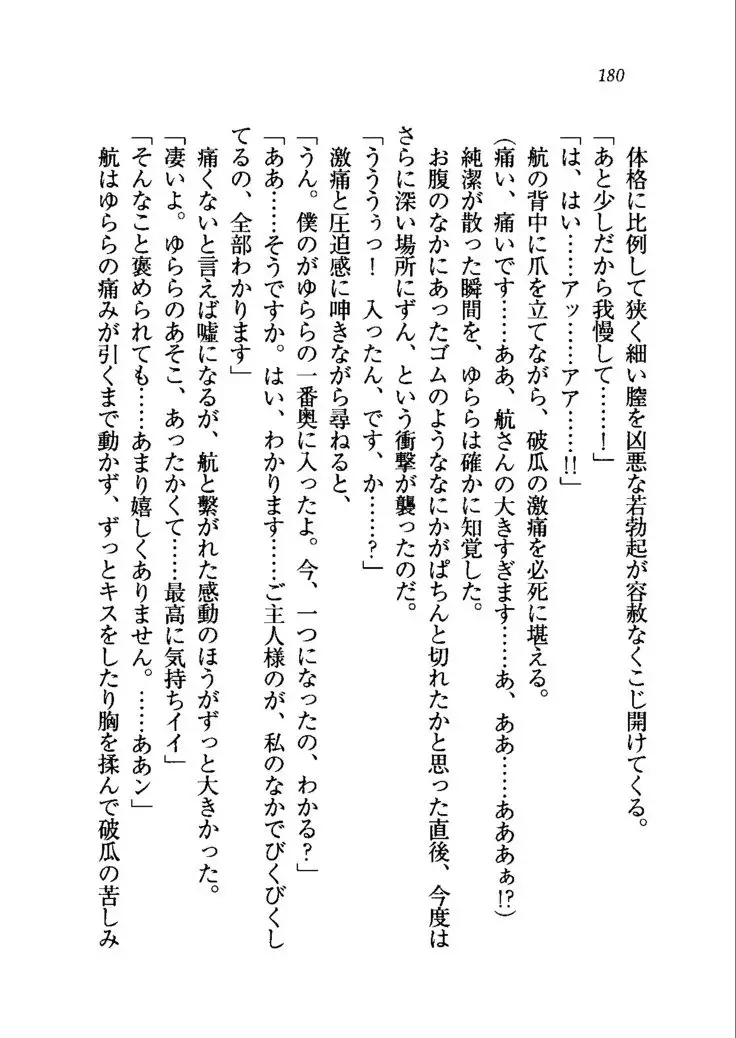 180
体格に比例して狭く細い膣を凶悪な若勃起が容赦なくこじ開けてくる。
「あと少しだから我慢して……！」
「は、はい……アッ……アア……!!」
航の背中に爪を立てながら、破瓜の激痛を必死に堪える。
（痛い、痛いです……ああ、航さんの大きすぎます……あ、ああ……あああぁ!?）
純潔が散った瞬間を、ゆららは確かに知覚した。
お腹のなかにあったゴムのようななにかがぱちんと切れたかと思った直後、今度は
さらに深い場所にずん、という衝撃が襲ったのだ。
「うううぅっ！　入ったん、です、か……？」
激痛と圧迫感に呻きながら尋ねると、
「うん。僕のがゆららの一番奥に入ったよ。今、一つになったの、わかる？」
「ああ……そうですか。はい、わかります……ご主人様のが、私のなかでびくびくし
てるの、全部わかります」
痛くないと言えば嘘になるが、航と繋がれた感動のほうがずっと大きかった。
「凄いよ。ゆららのあそこ、あったかくて……最高に気持ちイイ」
「そんなこと褒められても……あまり嬉しくありません。……ああン」
航はゆららの痛みが引くまで動かず、ずっとキスをしたり胸を揉んで破瓜の苦しみ